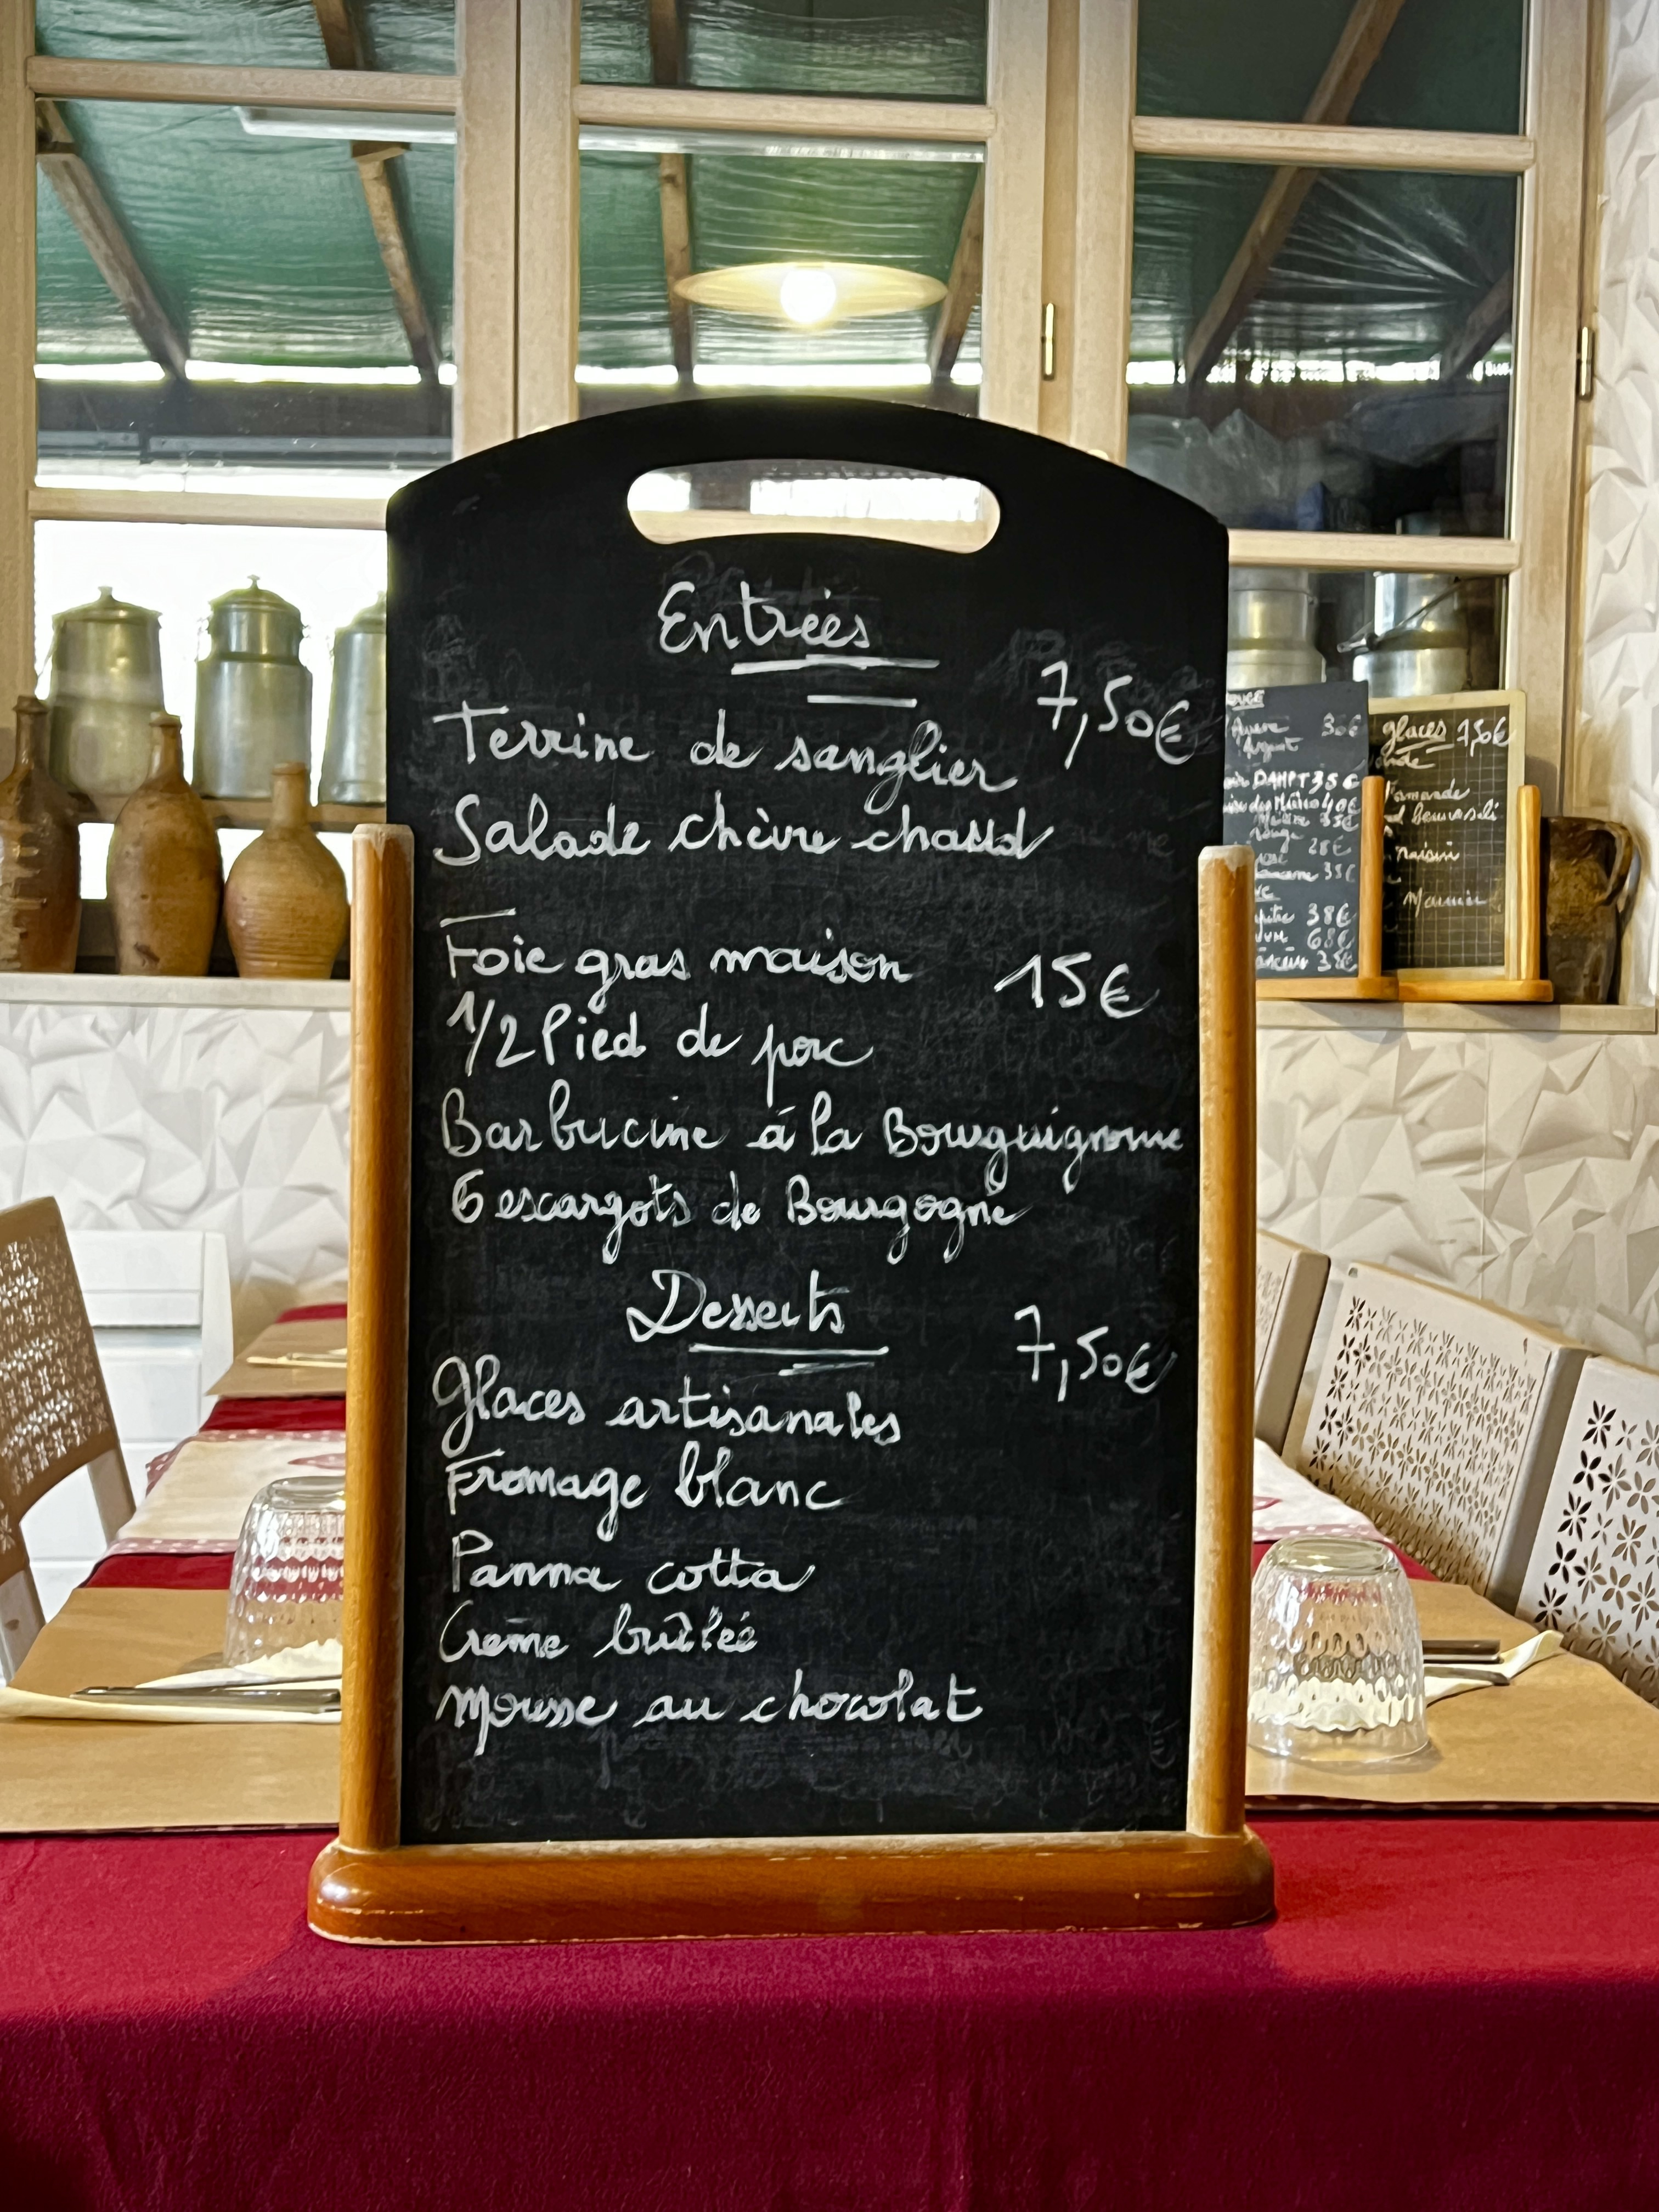 Entrées
7,50€
Terrine de sanglier
Salade chèvre chaud
Foie gras maison 15€
1/2 Pied de porc
Barbucine à la Bourguignonne
6 escargots de Bourgogne
Desserts
7,50€
Glaces artisanales
Fromage blanc
Panna cotta
Crème brûlée
Mousse au chocolat
30€
DAMPT 35€
40€
35€
Rouge
28€
35€
38€
68€
glaces 7,50€
raisin